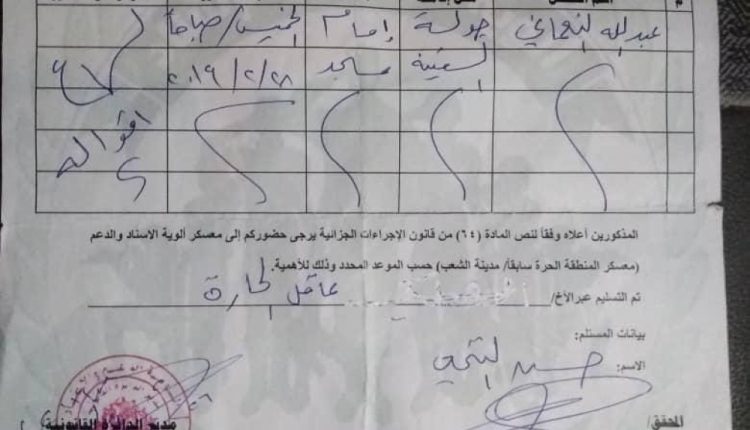 عبدالله النعماني جولة إمام الخميس/صباحاً
السفينة مسجد ٢٠١٩/٢/٢٨
اقواله
المذكورين أعلاه وفقاً لنص المادة (٦٤) من قانون الإجراءات الجزائية يرجى حضوركم إلى معسكر ألوية الاسناد والدعم
(معسكر المنطقة الحرة سابقاً/ مدينة الشعب) حسب الموعد المحدد وذلك للأهمية.
تم التسليم عبر الأخ/ عاقل الحارة
بيانات المستلم:
الاسم:
المحقق/ مدير الدائرة القانونية